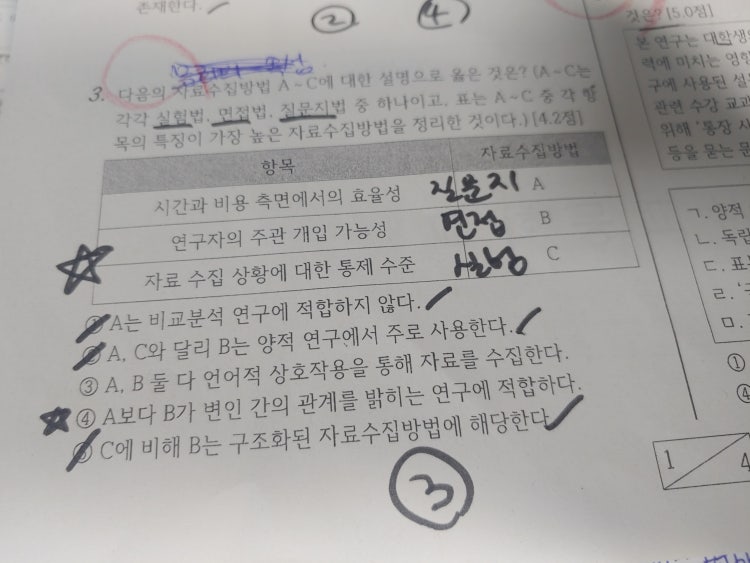 존재한다.
② ④
것은? [5.0점]
3. 다음의 자료수집방법 A~C에 대한 설명으로 옳은 것은? (A~C는
각각 실험법, 면접법, 질문지법 중 하나이고, 표는 A~C 중 각 항
목의 특징이 가장 높은 자료수집방법을 정리한 것이다.) [4.2점]
항목 자료수집방법
시간과 비용 측면에서의 효율성 질문지 A
연구자의 주관 개입 가능성 면접 B
자료 수집 상황에 대한 통제 수준 실험 C
① A는 비교분석 연구에 적합하지 않다.
② A, C와 달리 B는 양적 연구에서 주로 사용한다.
③ A, B 둘 다 언어적 상호작용을 통해 자료를 수집한다.
④ A보다 B가 변인 간의 관계를 밝히는 연구에 적합하다.
⑤ C에 비해 B는 구조화된 자료수집방법에 해당한다.
③
본 연구는 대학생
력에 미치는 영향
구에 사용된 설
관련 수강 교과
위해 '통장 사
등을 묻는 문
ㄱ. 양적
ㄴ. 독립
ㄷ. 표
ㄹ. '
ㅁ.
①
④
1 4